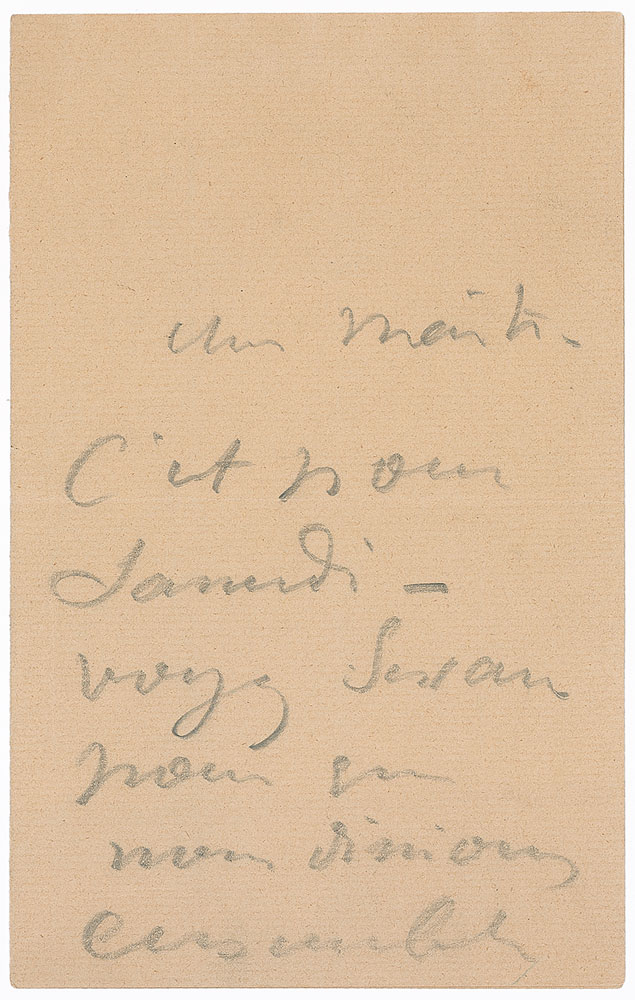 Cher Maître -
C'est pour
Samedi -
voyez
pour que
nous dinions
ensemble